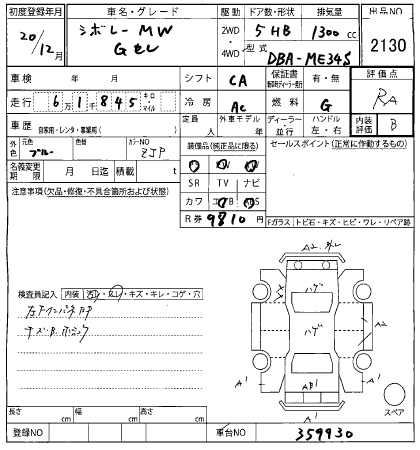 初度登録年月 車名・グレード 駆動 ドア数・形状 排気量 出品NO
20/12月 シボレー MW 2WD 5 HB 1300 cc 2130
Gセレ 4WD 型式 DBA-ME34S
車検 年 月 シフト CA 保証書 有・無 評価点
走行 6万1千845 キロ・マイル 冷房 AC 燃料 G RA
車歴 自家用・レンタ・事業用( ) 定員 人 外車モデル 年 ディーラー・並行 ハンドル 左・右 内装評価 B
外色 元色 ブルー 色替 カラーNO ZJP 装備品(純正品に限る) セールスポイント(正常に作動するもの)
名義変更期限 月 日迄 積載 t
SR TV ナビ
注意事項(欠品・修復・不具合箇所および状態) カワ
R券 9810円 Fガラス トビ石・キズ・ヒビ・ワレ・リペア跡
A2
ハゲ
検査員記入 内装 ・キズ・キレ・コゲ・穴
ハゲ A2
A1 AB1 A1
A1 スペア
長さ cm 幅 cm 高さ cm
登録NO 車台NO 359930